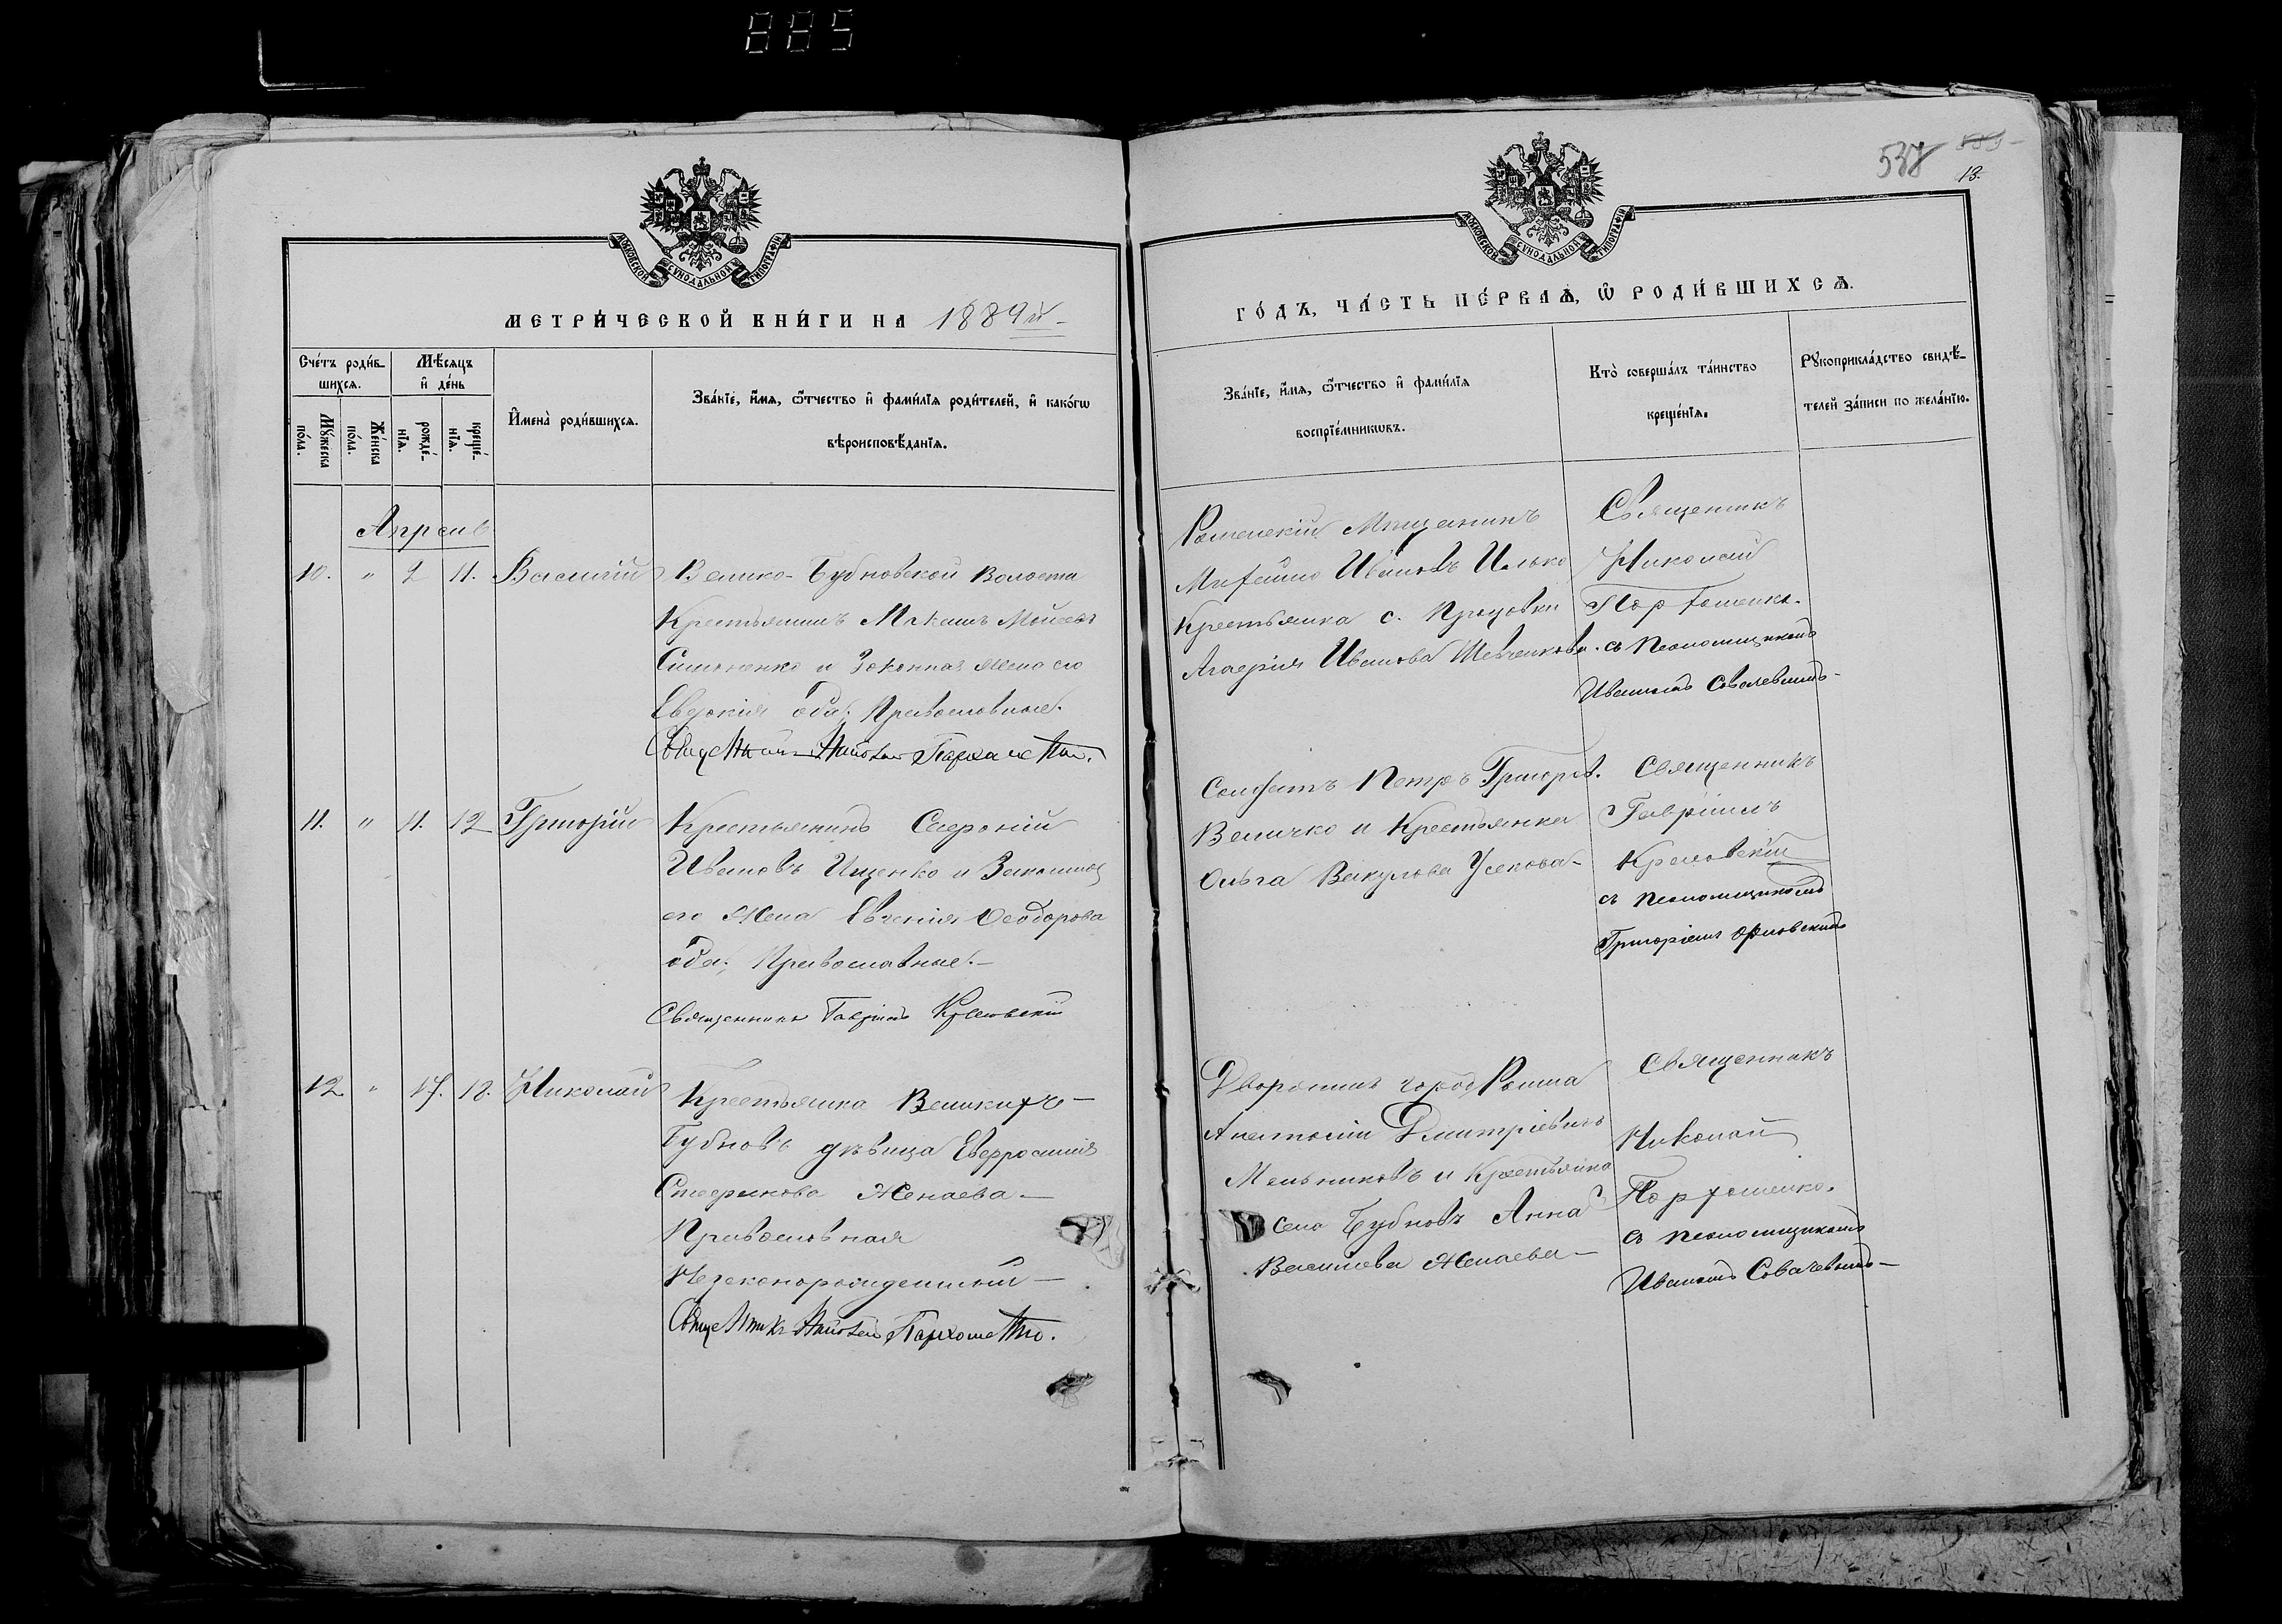 885
538 589
13.
МОСКОВСКОЙ СѴНОДАЛЬНОЙ ТИПОГРАФІИ
МЕТРИ́ЧЕСКОЙ КНИ́ГИ НА 1889й
Сче́тъ роди́в-
шихсѧ.
Мѣ́сѧцъ
и҆ де́нь
Мꙋ́жеска
по́ла.
Же́нска
по́ла.
рожде́-
нїѧ.
креще́-
нїѧ.
И҆мена̀ роди́вшихсѧ.
Зва́нїе, и҆́мѧ, ѻ҆́тчество и҆ фами́лїѧ роди́телей, и҆ како́гѡ
вѣроисповѣ́данїѧ.
Апрель
10. " 2 11. Василій
Велико-Бубновской Волости
Крестьянинъ Максимъ Моисеевъ
Симоненко и Законная жена его
Евдокія оба Православные.
Священникъ Николай Пархоменко.
11. " 11. 12 Григорій
Крестьянинъ
Ивановъ Ищенко и Законная
его жена Евгенія Ѳеодорова
оба Православные.—
Священникъ Гавріилъ
12 " 17. 18. Николай
Крестьянка Великихъ—
Бубновъ дѣвица Евфросинія
Стефанова Женаева—
Православная
Незаконорожденный—
Священникъ Николай Пархоменко.
МОСКОВСКОЙ СѴНОДАЛЬНОЙ ТИПОГРАФІИ
ГО́ДЪ, ЧА́СТЬ ПЕ́РВАѦ, Ѡ҆ РОДИ́ВШИХСѦ.
Зва́нїе, и҆́мѧ, ѻ҆́тчество и҆ фами́лїѧ
воспрїе́мникѡвъ.
Кто̀ соверша́лъ та́инство
креще́нїѧ.
Рꙋкоприкла́дство свидѣ́-
телей за́писи по жела́нїю.
Роменскій Мѣщанинъ
Михаилъ Ивановъ Илько
Крестьянка с. Процовки
Агафія Иванова Шевченкова.
Священникъ
Николай
Пархоменко.
съ Псаломщикомъ
Иваномъ
Солдатъ Петръ Григорьев.
Величко и Крестьянка
Ольга Вакулова Усикова—
Священникъ
Гавріилъ
съ Псаломщикомъ
Григоріемъ Орловскимъ
Дворянинъ город Ромна
Анатолій Дмитріевичъ
Мельниковъ и Крестьянка
село Бубновъ Анна
Василіева Женаева—
Священникъ
Николай
Пархоменко.
съ Псаломщикомъ
Иваномъ